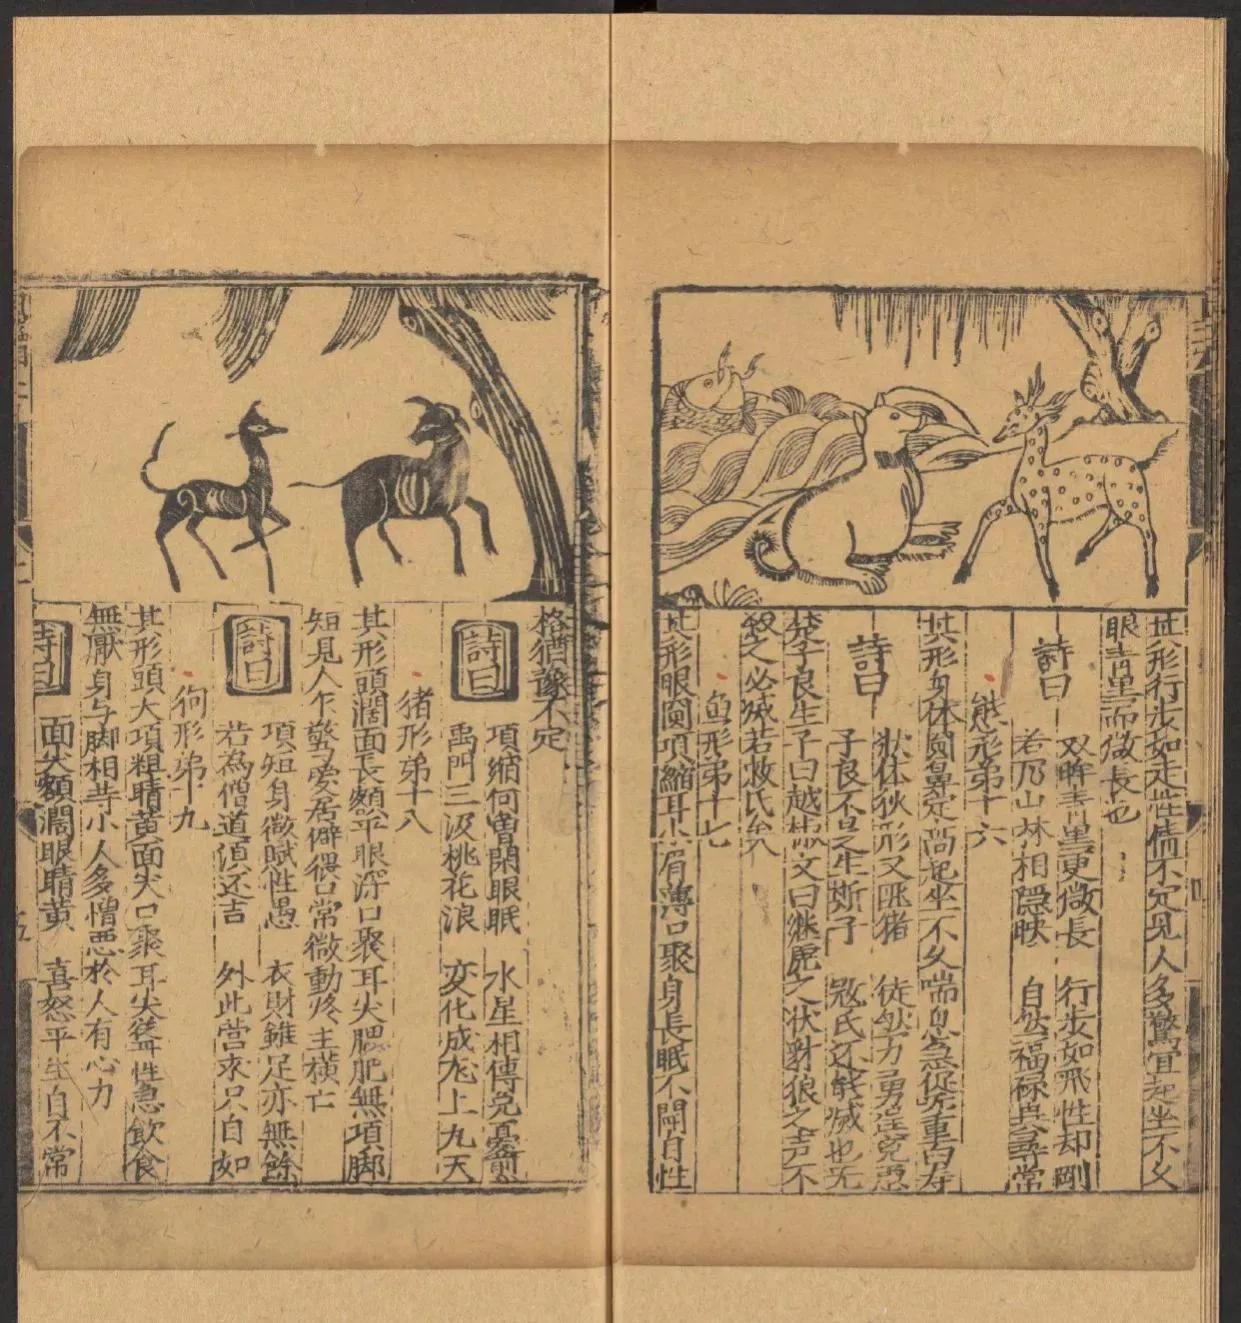 其形行步如走性情不定見人多驚宜起坐不久
眼青黑而微長也
詩曰
双眸青黑更微長 行步如飛性却剛
若乃山林相隱映 自然福祿異尋常
熊形弟十六
其形身体圓鼻定尚起坐不久喘息急促步重白寿
詩曰
狀体狄形又既猪 徒然力勇逞兇惡
子良不是生斯子 敖氏还能滅也无
楚子良生子曰越椒文曰継虎之状豺狼之声不
殺之必滅若敖氏矣
鱼形弟十七
其形眼圓項縮耳小眉薄口聚身長眠不閉自性
格猶豫不定
詩曰
項縮何曽閑眼眠 水星相傳免憂煎
禹門三汲桃花浪 变化成龙上九天
猪形弟十八
其形頭濶面長額平眼浮口聚耳尖腮肥無項脚
短見人乍驚爱居僻猥口常微動疼主横亡
詩曰
項短身微賦性愚 衣財雖足亦無餘
若為僧道須还吉 外此营求只自如
狗形弟十九
其形頭大項粗睛黄面尖口聚耳尖益性急飲食
無厭身与脚相等小人多憎惡於人有心力
詩曰
面尖額濶眼睛黄 喜怒平生自不常